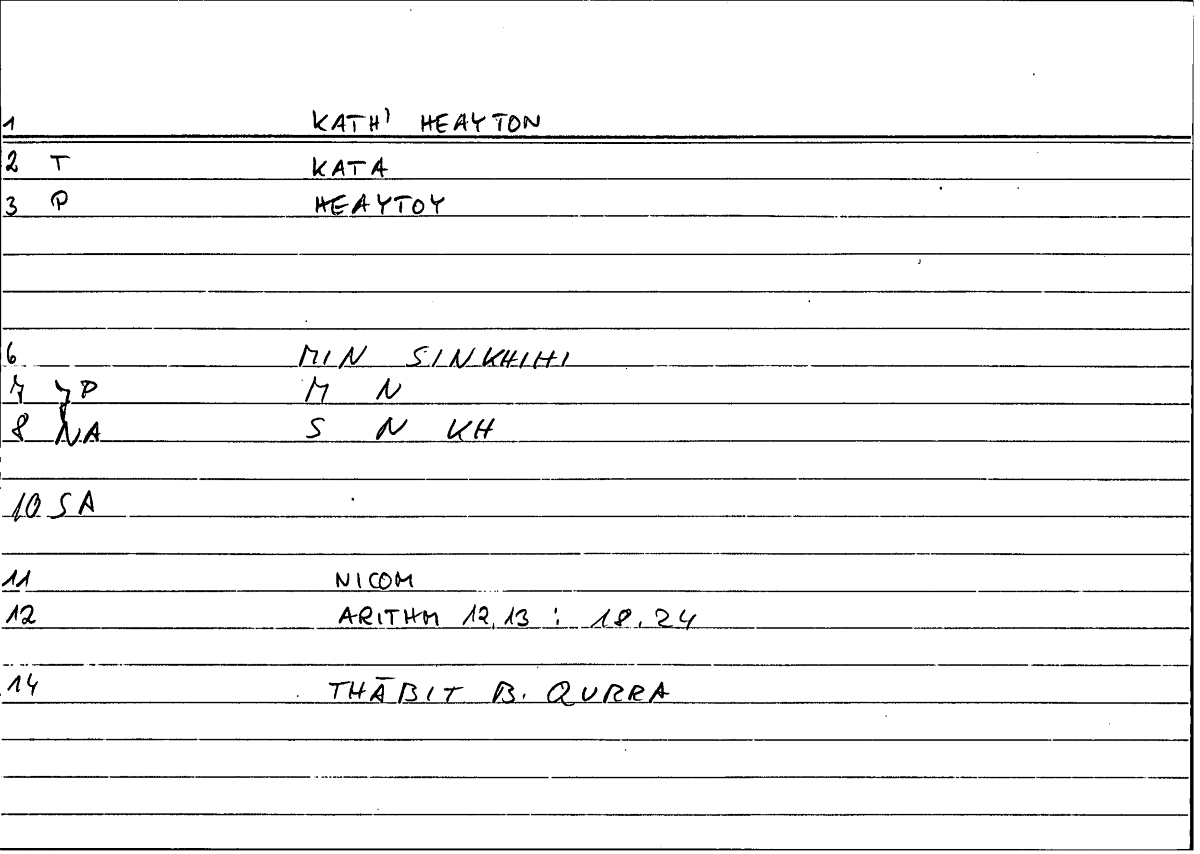 1 KATH' HEAYTON
2 T KATA
3 P HEAYTOY
6 MIN SINKHIHI
7 P M N
8 NA S N KH
10 SA
11 NICOM
12 ARITHM 12,13 : 18.24
14 THĀBIT B. QURRA